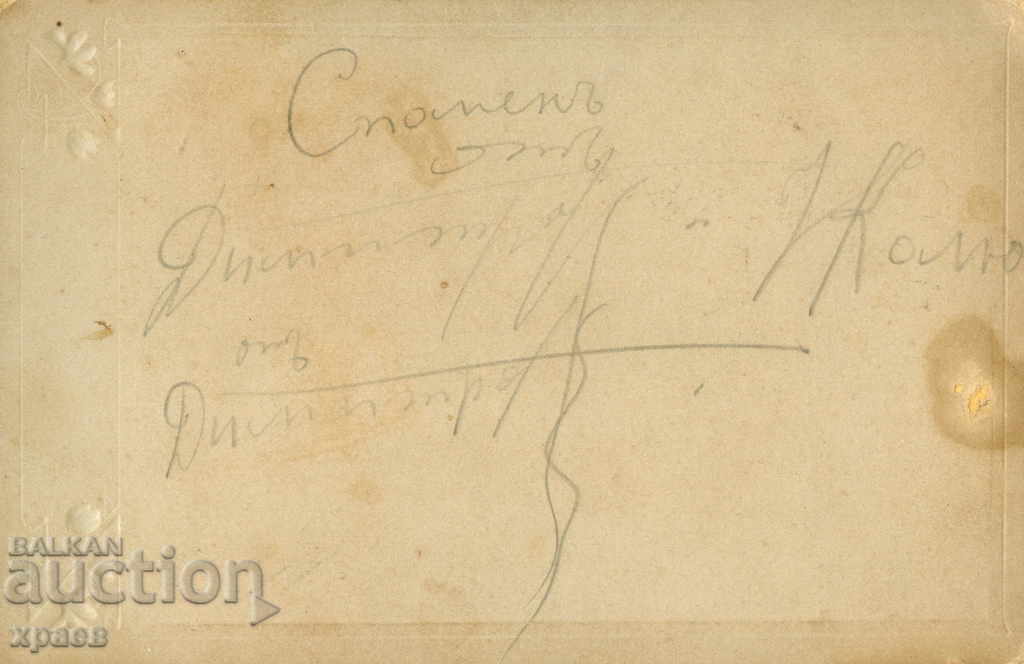 Споменъ
отъ
Димитръ И Калю
отъ
Димитръ
BALKAN
auction
храев